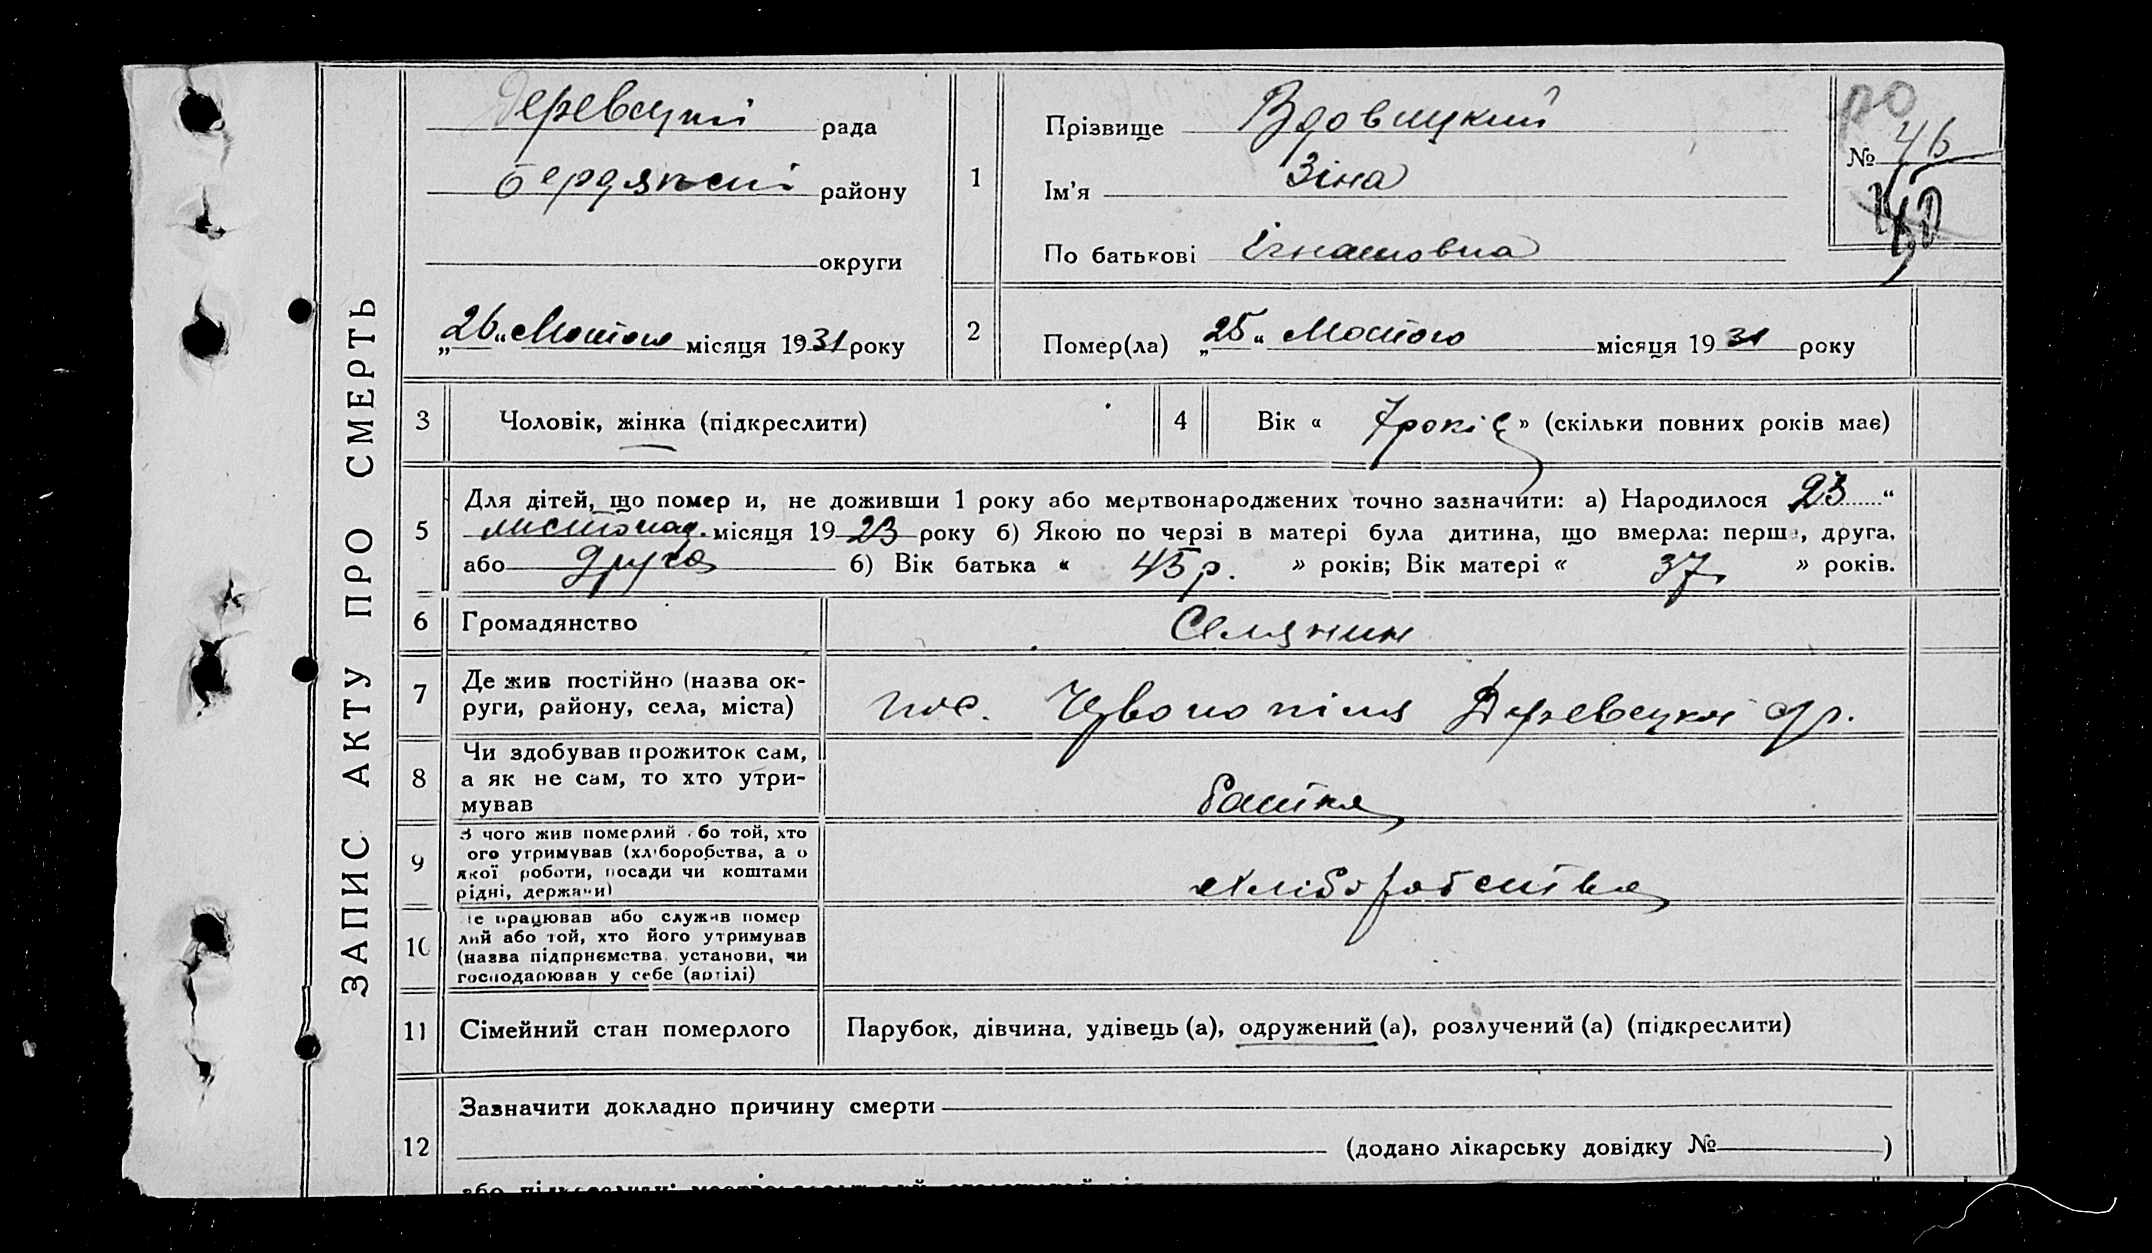 ЗАПИС АКТУ ПРО СМЕРТЬ
Деревецкій рада
бердянскі району
округи
„26“ Лютого місяця 1931 року
1
Прізвище Вдовицкий
Ім'я Зіна
По батькові ігнатовна
№ 46
2
Помер(ла) „25“ Лютого місяця 1931 року
3 Чоловік, жінка (підкреслити)
4 Вік « 7 років » (скільки повних років має)
5
Для дітей, що помер и, не доживши 1 року або мертвонароджених точно зазначити: а) Народилося 23 “
листопад. місяця 1923 року б) Якою по черзі в матері була дитина, що вмерла: перша, друга,
або друга б) Вік батька « 45 р. » років; Вік матері « 37 » років.
6 Громадянство Селянин
7
Де жив постійно (назва ок-
руги, району, села, міста)
пос.
8
Чи здобував прожиток сам,
а як не сам, то хто утри-
мував
батько
9
З чого жив померлий або той, хто
ого утримував (хліборобства, а о
якої роботи, посади чи коштами
рідні, держави)
хліборобство
10
е працював або служив помер
лий або той, хто його утримував
(назва підприємства, установи, чи
господарював у себе (артілі)
11 Сімейний стан померлого Парубок, дівчина, удівець (а), одружений (а), розлучений (а) (підкреслити)
12
Зазначити докладно причину смерти
(додано лікарську довідку № )